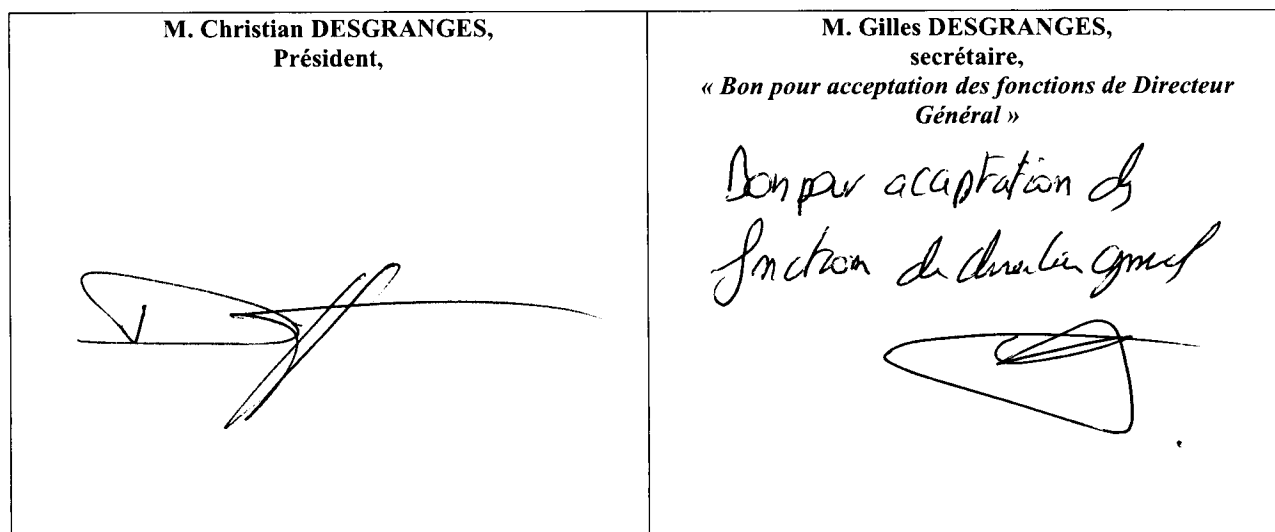 M. Christian DESGRANGES,
Président,
M. Gilles DESGRANGES,
secrétaire,
« Bon pour acceptation des fonctions de Directeur
Général »
Bon pour acceptation des
fonction de directeur général